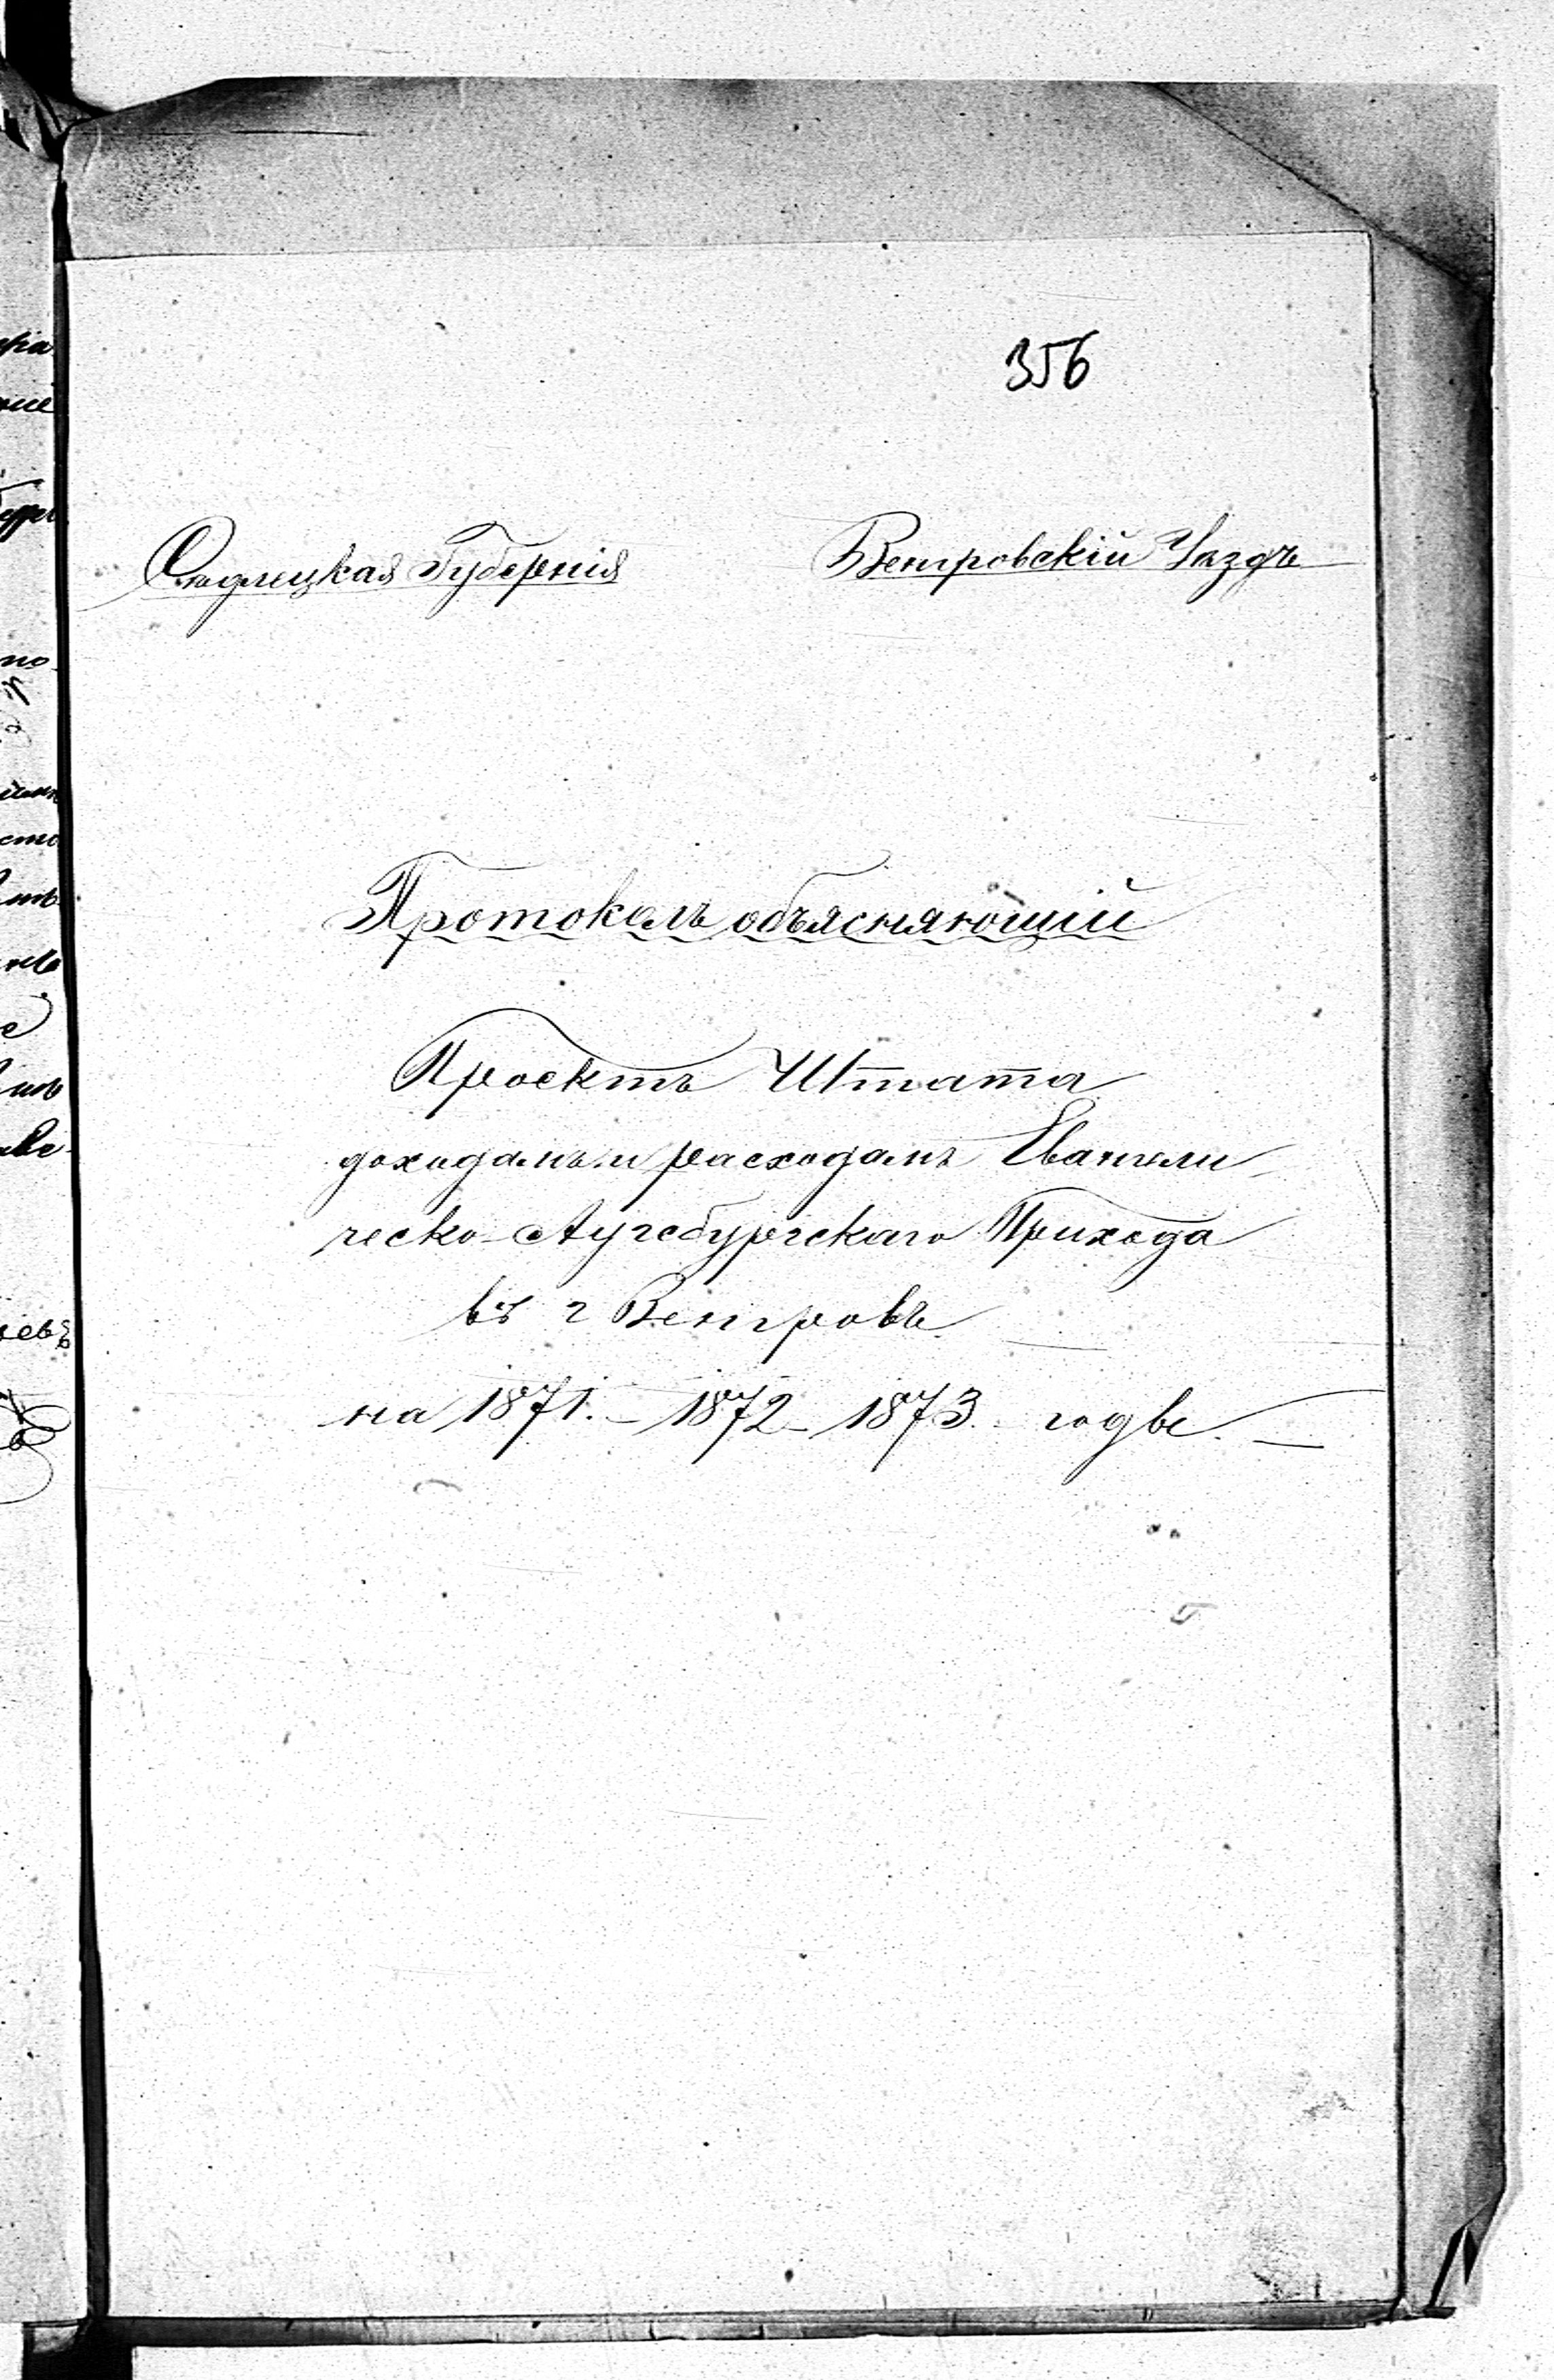 356
Сѣдлецкая Губернія
Венгровскій Уѣздъ
Протоколъ объясняющій
Проектъ Штата
доходамъ и расходамъ Евангели
ческо-Аугсбургскаго Прихода
въ г Венгровѣ
на 1871. - 1872 - 1873 годы. -